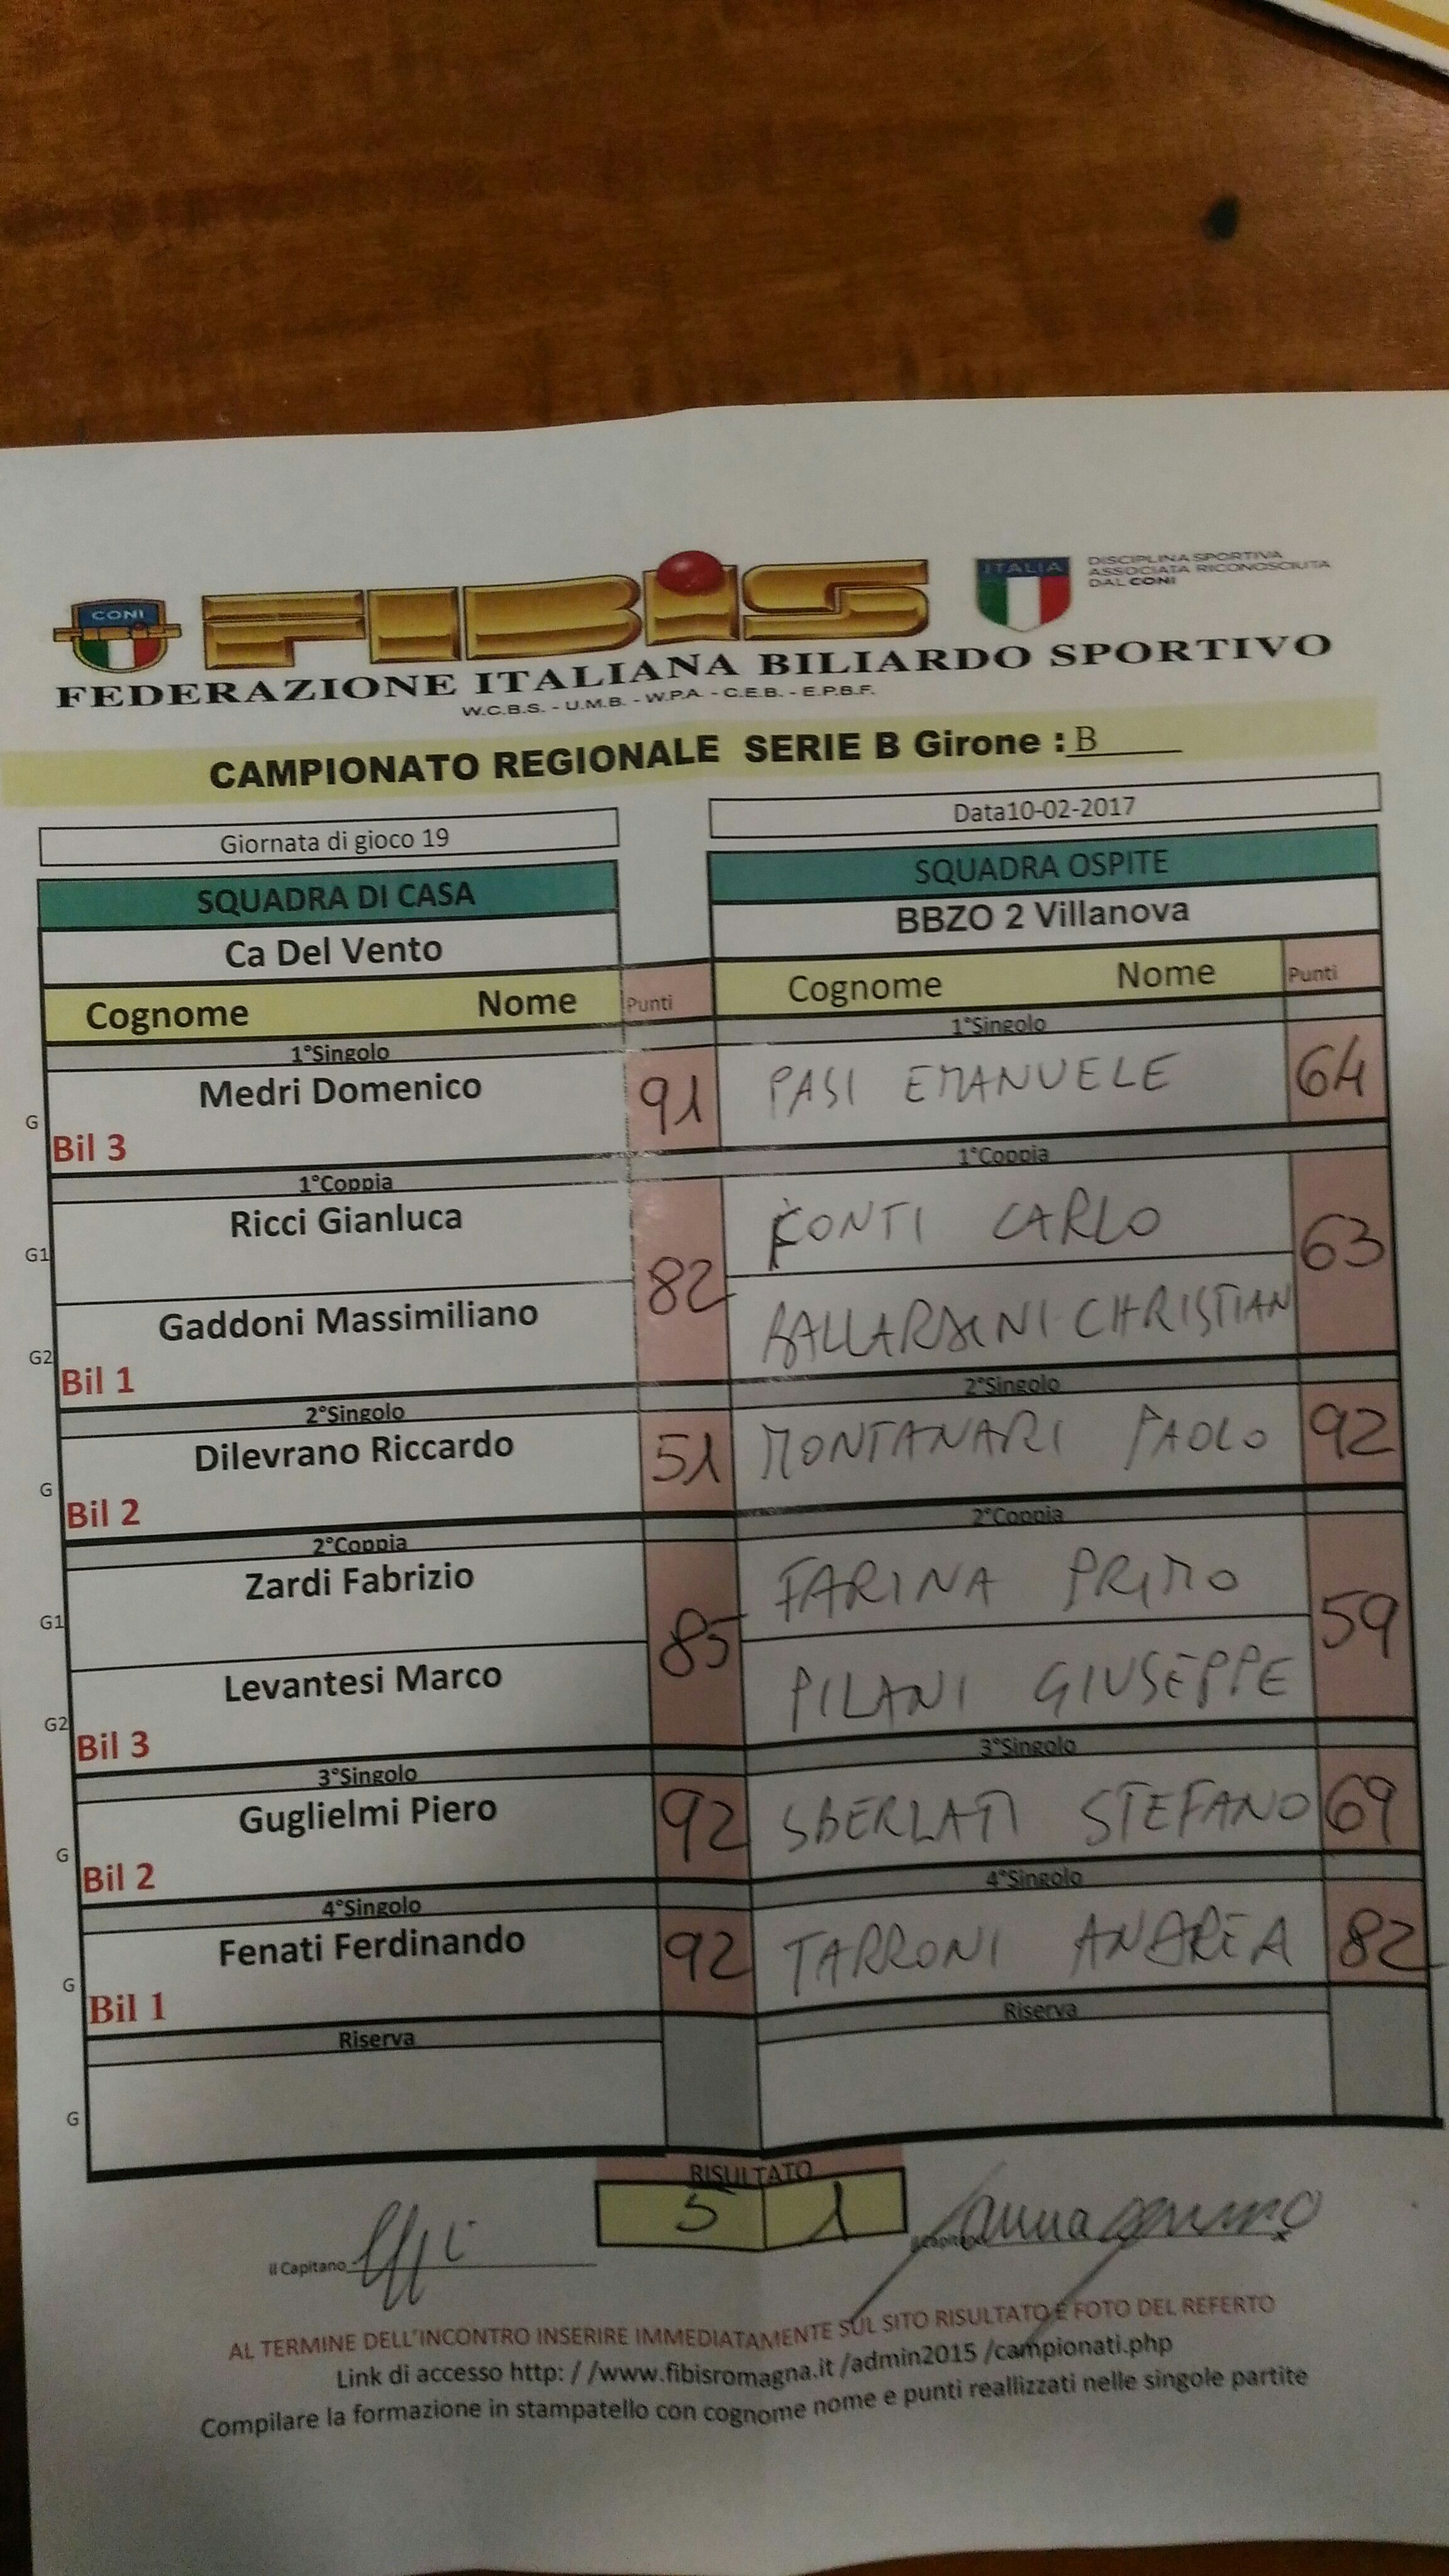 CONI
FIBiS
ITALIA
DISCIPLINA SPORTIVA
ASSOCIATA RICONOSCIUTA
DAL CONI
FEDERAZIONE ITALIANA BILIARDO SPORTIVO
W.C.B.S. - U.M.B. - W.P.A. - C.E.B. - E.P.B.F.
CAMPIONATO REGIONALE SERIE B Girone : B
Giornata di gioco 19 Data10-02-2017
SQUADRA DI CASA SQUADRA OSPITE
Ca Del Vento BBZO 2 Villanova
Cognome Nome Punti Cognome Nome Punti
1°Singolo 1°Singolo
Medri Domenico 91 PASI EMANUELE 64
G
Bil 3
1°Coppia 1°Coppia
Ricci Gianluca CONTI CARLO
G1 82 63
Gaddoni Massimiliano BALLARDINI CHRISTIAN
G2
Bil 1
2°Singolo 2°Singolo
Dilevrano Riccardo 51 MONTANARI PAOLO 92
G
Bil 2
2°Coppia 2°Coppia
Zardi Fabrizio FARINA PRIMO
G1 85 59
Levantesi Marco PILANI GIUSEPPE
G2
Bil 3
3°Singolo 3°Singolo
Guglielmi Piero 92 SBERLATI STEFANO 69
G
Bil 2
4°Singolo 4°Singolo
Fenati Ferdinando 92 TARRONI ANDREA 82
G
Bil 1
Riserva Riserva
G
RISULTATO
5 1
il Capitano
AL TERMINE DELL'INCONTRO INSERIRE IMMEDIATAMENTE SUL SITO RISULTATO E FOTO DEL REFERTO
Link di accesso http: / /www.fibisromagna.it /admin2015 /campionati.php
Compilare la formazione in stampatello con cognome nome e punti reallizzati nelle singole partite